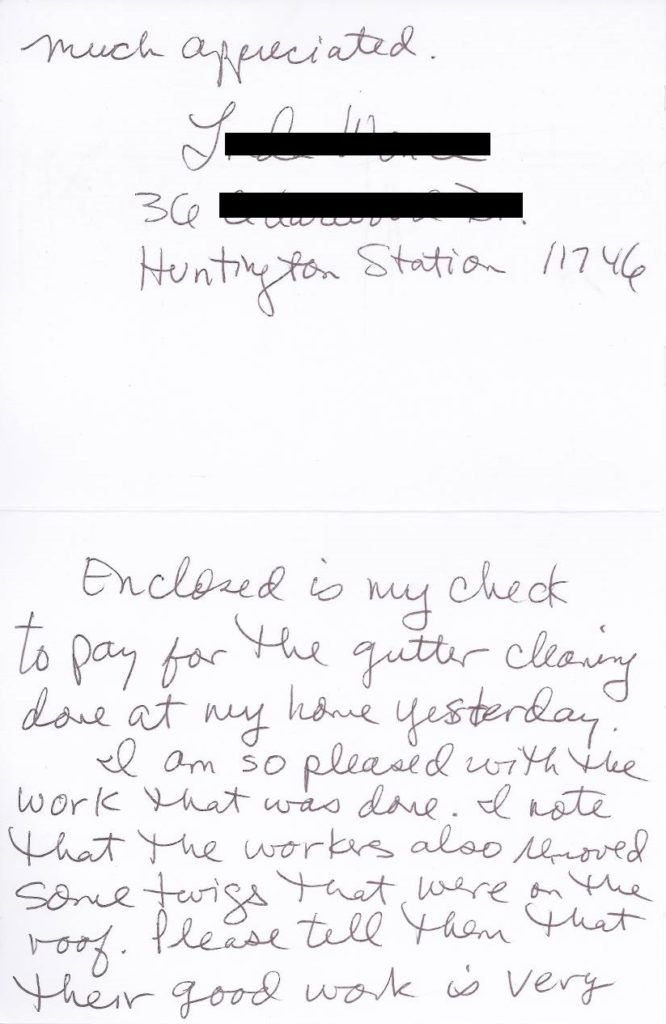 Enclosed is my check
to pay for the gutter cleaning
done at my home yesterday.
I am so pleased with the
work that was done. I note
that the workers also removed
some twigs that were on the
roof. Please tell them that
their good work is very
much appreciated.
36
Huntington Station 11746